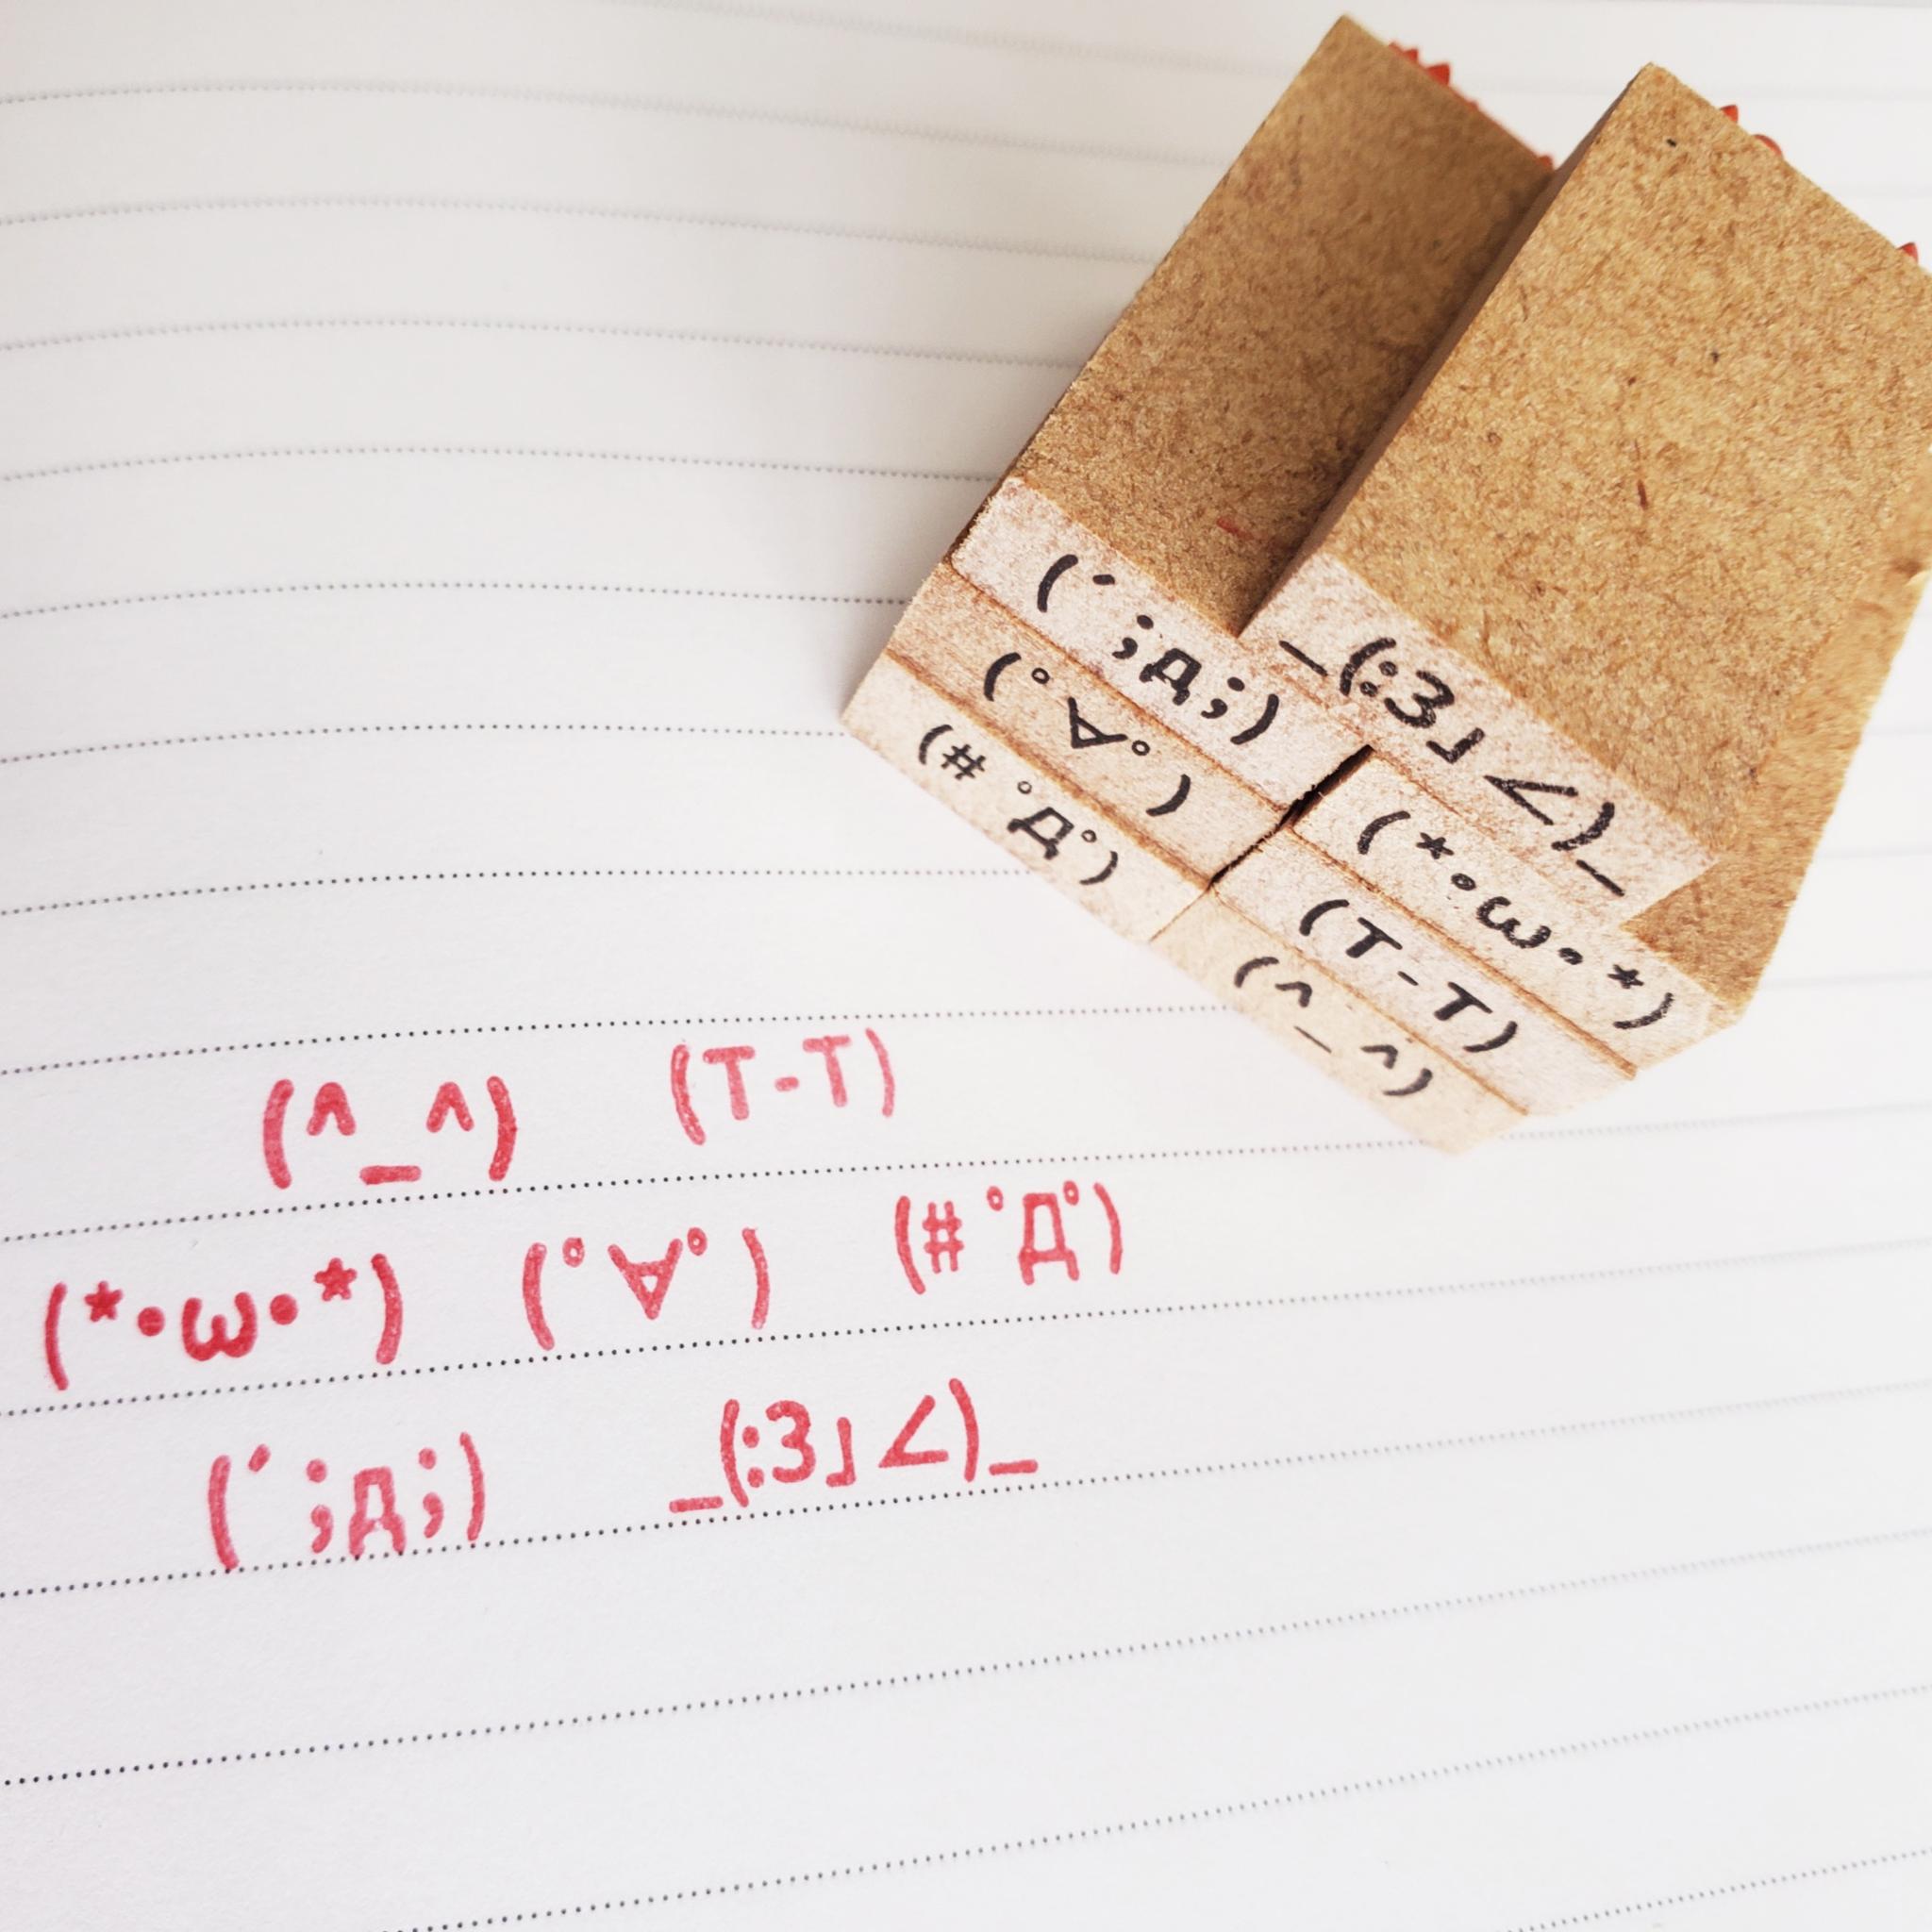 (´ ;д;)
_(:3」∠)_
(ﾟ∀ﾟ)
(*•ω•*)
(# ﾟДﾟ)
(T-T)
(^_^)
(^_^) (T-T)
(*•ω•*) (ﾟ∀ﾟ) (# ﾟДﾟ)
(´ ;д;) _(:3」∠)_